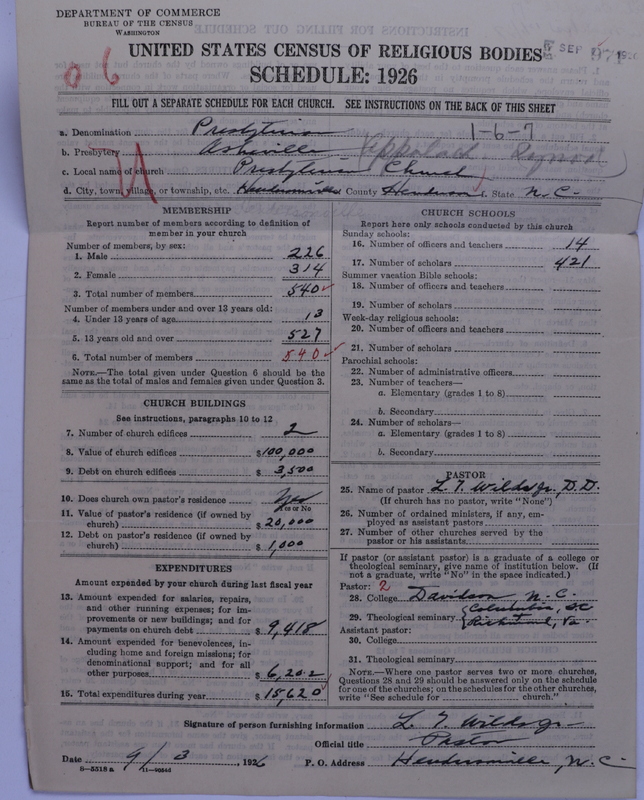 DEPARTMENT OF COMMERCE
BUREAU OF THE CENSUS
WASHINGTON
UNITED STATES CENSUS OF RELIGIOUS BODIES
SEP
SCHEDULE: 1926
FILL OUT A SEPARATE SCHEDULE FOR EACH CHURCH. SEE INSTRUCTIONS ON THE BACK OF THIS SHEET
1-6-7
a. Denomination Presbyterian
b. Presbytery Asheville (Appalach
c. Local name of church Presbyterian Church
d. City, town, village, or township, etc. Hendersonville County Henderson State N.C.
MEMBERSHIP
Report number of members according to definition of
member in your church
Number of members, by sex:
1. Male 226
2. Female 314
3. Total number of members 540
Number of members under and over 13 years old:
4. Under 13 years of age 13
5. 13 years old and over 527
6. Total number of members 540
NOTE.—The total given under Question 6 should be the
same as the total of males and females given under Question 3.
CHURCH BUILDINGS
See instructions, paragraphs 10 to 12
7. Number of church edifices 2
8. Value of church edifices $100,000
9. Debt on church edifices $ 3,500
10. Does church own pastor's residence Yes
Yes or No
11. Value of pastor's residence (if owned by
church) $ 20,000
12. Debt on pastor's residence (if owned by
church) $ 1,000
EXPENDITURES
Amount expended by your church during last fiscal year
13. Amount expended for salaries, repairs,
and other running expenses; for im-
provements or new buildings; and for
payments on church debt $ 9,418
14. Amount expended for benevolences, in-
cluding home and foreign missions; for
denominational support; and for all
other purposes $ 6,202
15. Total expenditures during year $ 15,620
CHURCH SCHOOLS
Report here only schools conducted by this church
Sunday schools:
16. Number of officers and teachers 14
17. Number of scholars 421
Summer vacation Bible schools:
18. Number of officers and teachers
19. Number of scholars
Week-day religious schools:
20. Number of officers and teachers
21. Number of scholars
Parochial schools:
22. Number of administrative officers
23. Number of teachers—
a. Elementary (grades 1 to 8)
b. Secondary
24. Number of scholars—
a. Elementary (grades 1 to 8)
b. Secondary
PASTOR
25. Name of pastor L. T. Wilds Jr., D.D.
(If church has no pastor, write "None")
26. Number of ordained ministers, if any, em-
ployed as assistant pastors
27. Number of other churches served by the
pastor or his assistants
If pastor (or assistant pastor) is a graduate of a college or
theological seminary, give name of institution below. (If
not a graduate, write "No" in the space indicated.)
Pastor: 2
28. College Davidson N.C.
29. Theological seminary { Columbia, SC
Richmond, Va.
Assistant pastor:
30. College
31. Theological seminary
NOTE.—Where one pastor serves two or more churches,
Questions 28 and 29 should be answered only on the schedule
for one of the churches; on the schedules for the other churches,
write "See schedule for church."
Signature of person furnishing information L. T. Wilds Jr
Official title Pastor
Date 9/3, 1926 P. O. Address Hendersonville, N.C.
S—5518 a 11—9034d